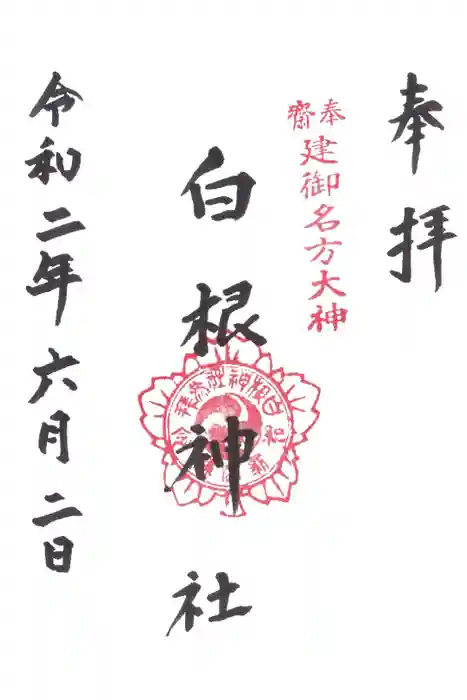 奉拝
奉斎
建御名方大神
白根神社
令和二年六月二日